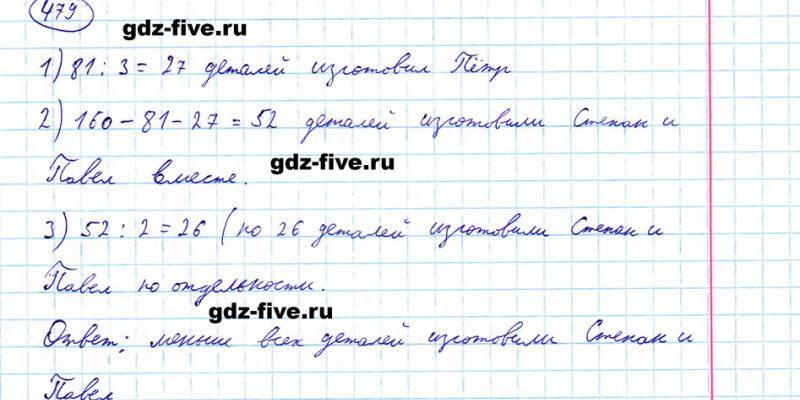 479
gdz-five.ru
1) 81 : 3 = 27 деталей изготовил Пётр
2) 160 - 81 - 27 = 52 деталей изготовили Степан и
Павел вместе.
gdz-five.ru
3) 52 : 2 = 26 ( по 26 деталей изготовили Степан и
Павел по отдельности.
gdz-five.ru
Ответ: меньше всех деталей изготовили Степан и
Павел